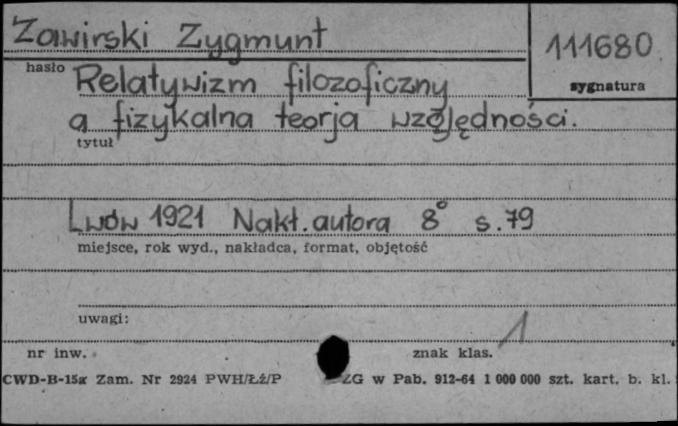 Zawirski Zygmunt
111680
hasło
sygnatura
Relatywizm filozoficzny
a fizykalna teorja względności.
tytuł
Lwów 1921 Nakł. autora 8° s. 79
miejsce, rok wyd., nakładca, format, objętość
uwagi:
1
nr inw.
znak klas.
CWD-B-15a Zam. Nr 2924 PWH/Łź/P ZG w Pab. 912-64 1 000 000 szt. kart. b. kl.